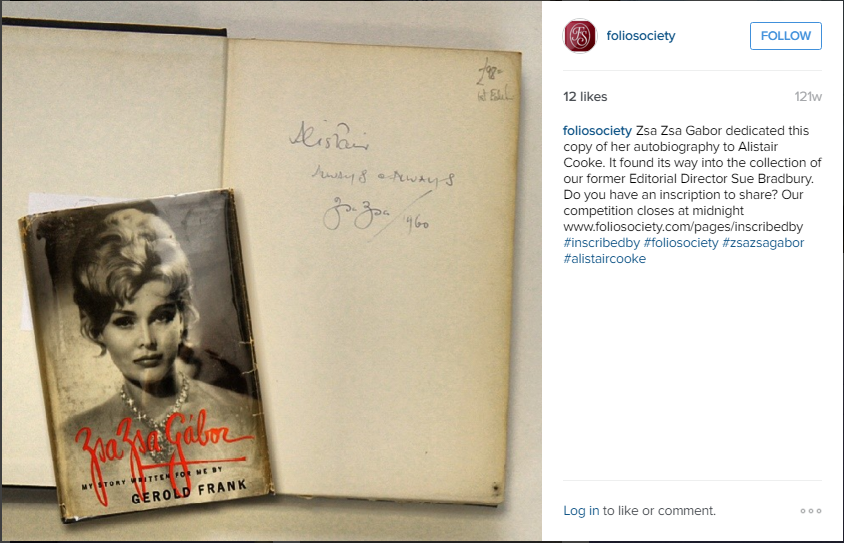 £98-
1st Edition
Alistair
Always & Always
Zsa Zsa
1960
Zsa Zsa Gábor
MY STORY WRITTEN FOR ME BY
GEROLD FRANK
FS
foliosociety
FOLLOW
12 likes
121w
foliosociety Zsa Zsa Gabor dedicated this
copy of her autobiography to Alistair
Cooke. It found its way into the collection of
our former Editorial Director Sue Bradbury.
Do you have an inscription to share? Our
competition closes at midnight
www.foliosociety.com/pages/inscribedby
#inscribedby #foliosociety #zsazsagabor
#alistaircooke
Log in to like or comment.